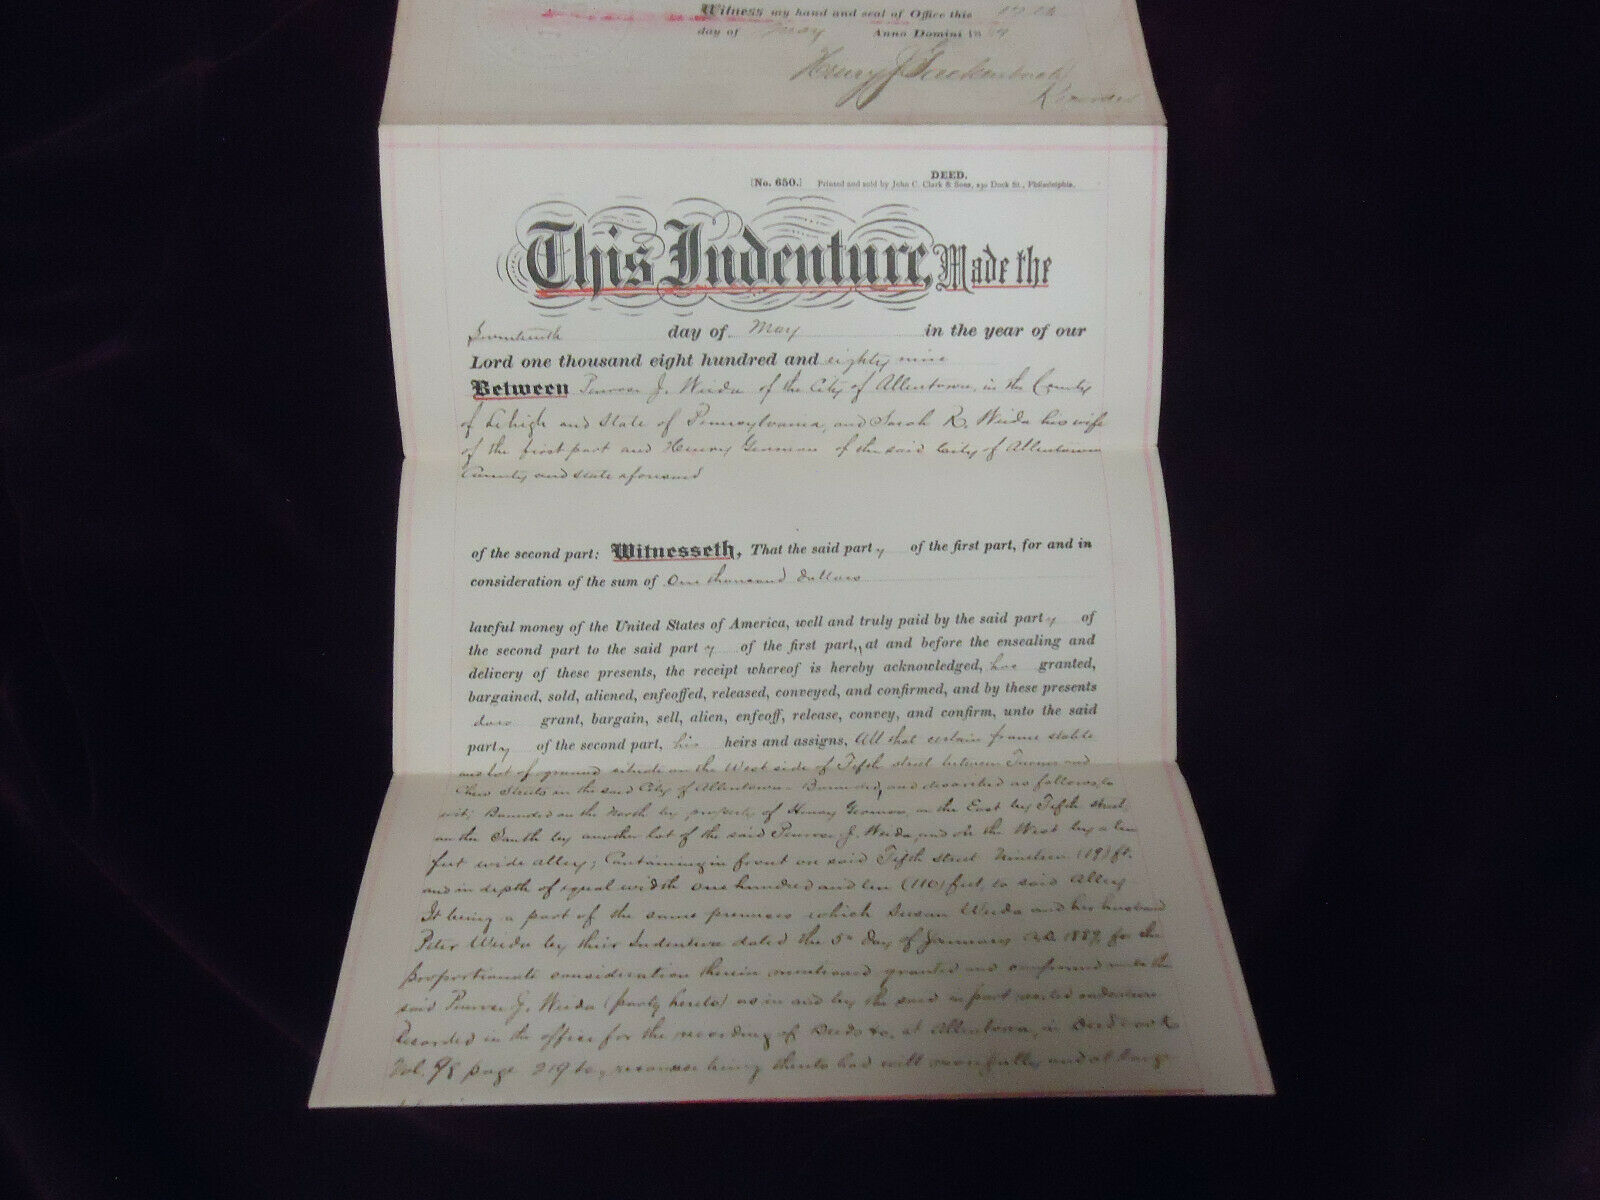 Witness my hand and seal of Office this 17 th
day of May Anno Domini 1889
Henry J.
Recorder
DEED.
[No. 650.] Printed and sold by John C. Clark & Sons, 230 Dock St., Philadelphia.
This Indenture, Made the
Seventeenth day of May in the year of our
Lord one thousand eight hundred and eighty nine
Between J. Weida of the City of Allentown, in the County
of Lehigh and State of Pennsylvania, and Sarah R. Weida his wife
of the first part and Henry German of the said City of Allentown
County and State aforesaid
of the second part: Witnesseth, That the said party of the first part, for and in
consideration of the sum of One thousand dollars
lawful money of the United States of America, well and truly paid by the said party of
the second part to the said party of the first part, at and before the ensealing and
delivery of these presents, the receipt whereof is hereby acknowledged, has granted,
bargained, sold, aliened, enfeoffed, released, conveyed, and confirmed, and by these presents
does grant, bargain, sell, alien, enfeoff, release, convey, and confirm, unto the said
party of the second part, his heirs and assigns, All that certain frame stable
and lot of ground situate on the West side of Fifth street between Turner and
Chew Streets in the said City of Allentown - Bounded, and described as follows, to
wit; Bounded on the North by property of Henry German, on the East by Fifth street,
on the South by another lot of the said J. Weida, and on the West by a ten
feet wide alley; Containing in front on said Fifth street Nineteen (19) ft.
and in depth of equal width one hundred and ten (110) feet, to said Alley
It being a part of the same premises which Susan Weida and her husband
Peter Weida by their Indenture dated the 5th day of January A.D. 1889, for the
proportionate consideration therein mentioned granted and confirmed unto the
said J. Weida (party hereto) as in and by the said in part recited indenture
Recorded in the office for the recording of Deeds &c, at Allentown, in Deed book
Vol. 98 page 219 &c, recourse being thereto had will more fully and at large